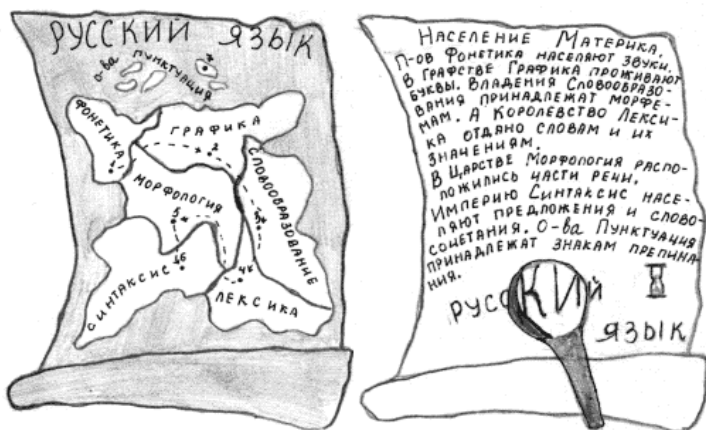 РУССКИЙ ЯЗЫК
О-ва ПУНКТУАЦИЯ
7
ФОНЕТИКА
1
ГРАФИКА
2
СЛОВООБРАЗОВАНИЕ
3
МОРФОЛОГИЯ
5
СИНТАКСИС
6
4
ЛЕКСИКА
НАСЕЛЕНИЕ МАТЕРИКА.
П-ОВ ФОНЕТИКА НАСЕЛЯЮТ ЗВУКИ.
В ГРАФСТВЕ ГРАФИКА ПРОЖИВАЮТ
БУКВЫ. ВЛАДЕНИЯ СЛОВООБРАЗО-
ВАНИЯ ПРИНАДЛЕЖАТ МОРФЕ-
МАМ. А КОРОЛЕВСТВО ЛЕКСИ-
КА ОТДАНО СЛОВАМ И ИХ
ЗНАЧЕНИЯМ.
В ЦАРСТВЕ МОРФОЛОГИЯ РАСПО-
ЛОЖИЛИСЬ ЧАСТИ РЕЧИ.
ИМПЕРИЮ СИНТАКСИС НАСЕ-
ЛЯЮТ ПРЕДЛОЖЕНИЯ И СЛОВО-
СОЧЕТАНИЯ. О-ВА ПУНКТУАЦИЯ
ПРИНАДЛЕЖАТ ЗНАКАМ ПРЕПИНА-
НИЯ.
РУССКИЙ
ЯЗЫК